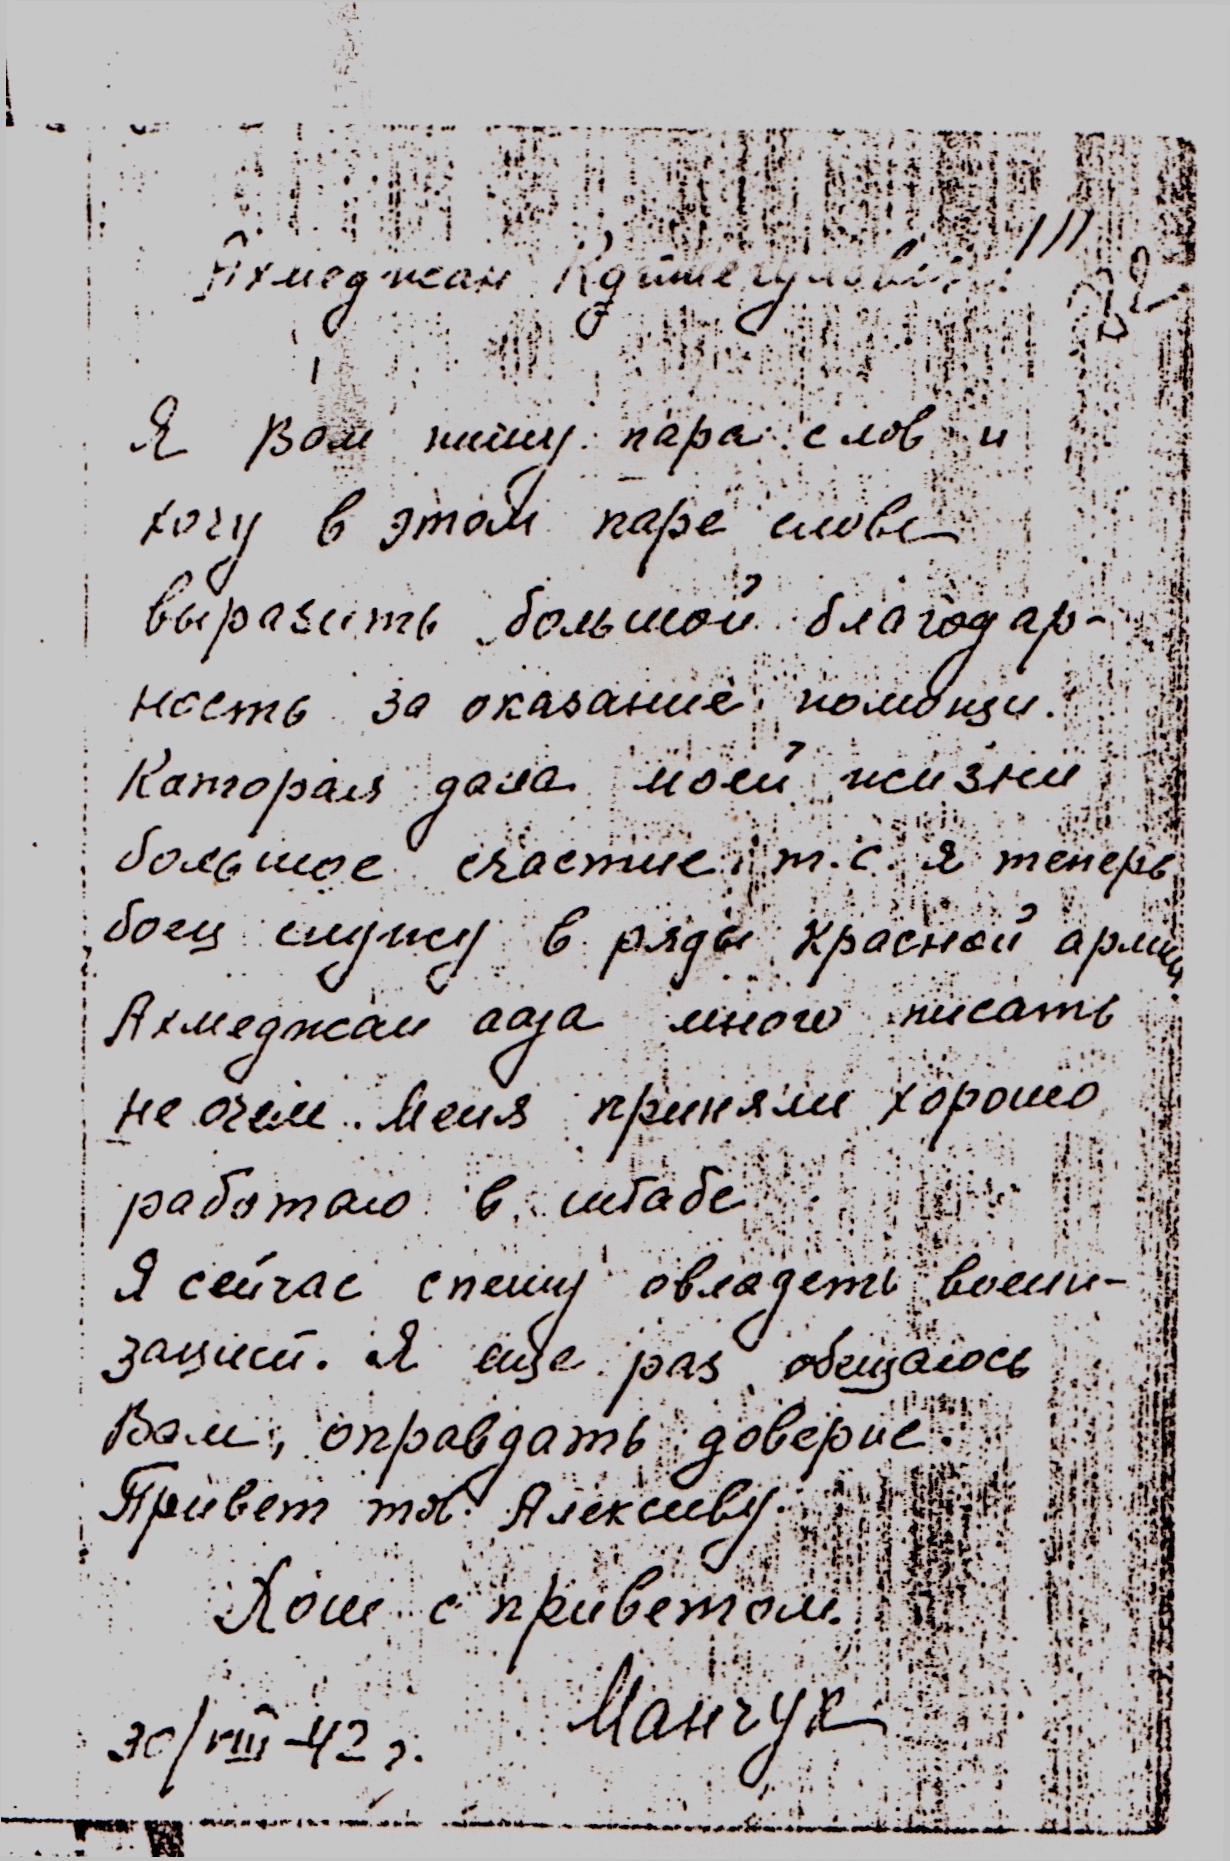 Ахмеджан Койшегулович!!!
22
Я Вам пишу пара слов и
хочу в этом паре слове
выразить большой благодар-
ность за оказание помощи.
Катторая дала моей жизни
большое счастие, т.е. я теперь
боец служу в ряды Красной армии
Ахмеджан ага много писать
не очем. Меня приняли хорошо
работаю в штабе
Я сейчас спешу овладеть воени-
зацией. Я еще раз обещаюсь
Вам, оправдать доверие.
Привет тов. Алексееву.
Хош с приветом.
Маншук
30/VIII-42 г.